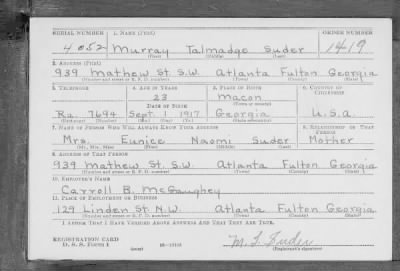 SERIAL NUMBER 1. NAME (Print) ORDER NUMBER
4052 Murray Talmadge Suder 1419
(First) (Middle) (Last)
2. ADDRESS (Print)
939 Mathew St. S.W. Atlanta Fulton Georgia
(Number and street or R. F. D. number) (Town) (County) (State)
3. TELEPHONE 4. AGE IN YEARS 5. PLACE OF BIRTH 6. COUNTRY OF CITIZENSHIP
23 Macon
DATE OF BIRTH (Town or county)
Ra. 7694 Sept. 1 1917 Georgia U.S.A.
(Exchange) (Number) (Mo.) (Day) (Yr.) (State or country)
7. NAME OF PERSON WHO WILL ALWAYS KNOW YOUR ADDRESS 8. RELATIONSHIP OF THAT PERSON
Mrs. Eunice Naomi Suder Mother
(Mr., Mrs., Miss) (First) (Middle) (Last)
9. ADDRESS OF THAT PERSON
939 Mathew St. S.W. Atlanta Fulton Georgia
(Number and street or R. F. D. number) (Town) (County) (State)
10. EMPLOYER'S NAME
Carroll B. McGaughey
11. PLACE OF EMPLOYMENT OR BUSINESS
129 Linden St. N.W. Atlanta Fulton Georgia
(Number and street or R. F. D. number) (Town) (County) (State)
I AFFIRM THAT I HAVE VERIFIED ABOVE ANSWERS AND THAT THEY ARE TRUE.
REGISTRATION CARD
D. S. S. Form 1 (over) M. T. Suder
(Registrant's signature)